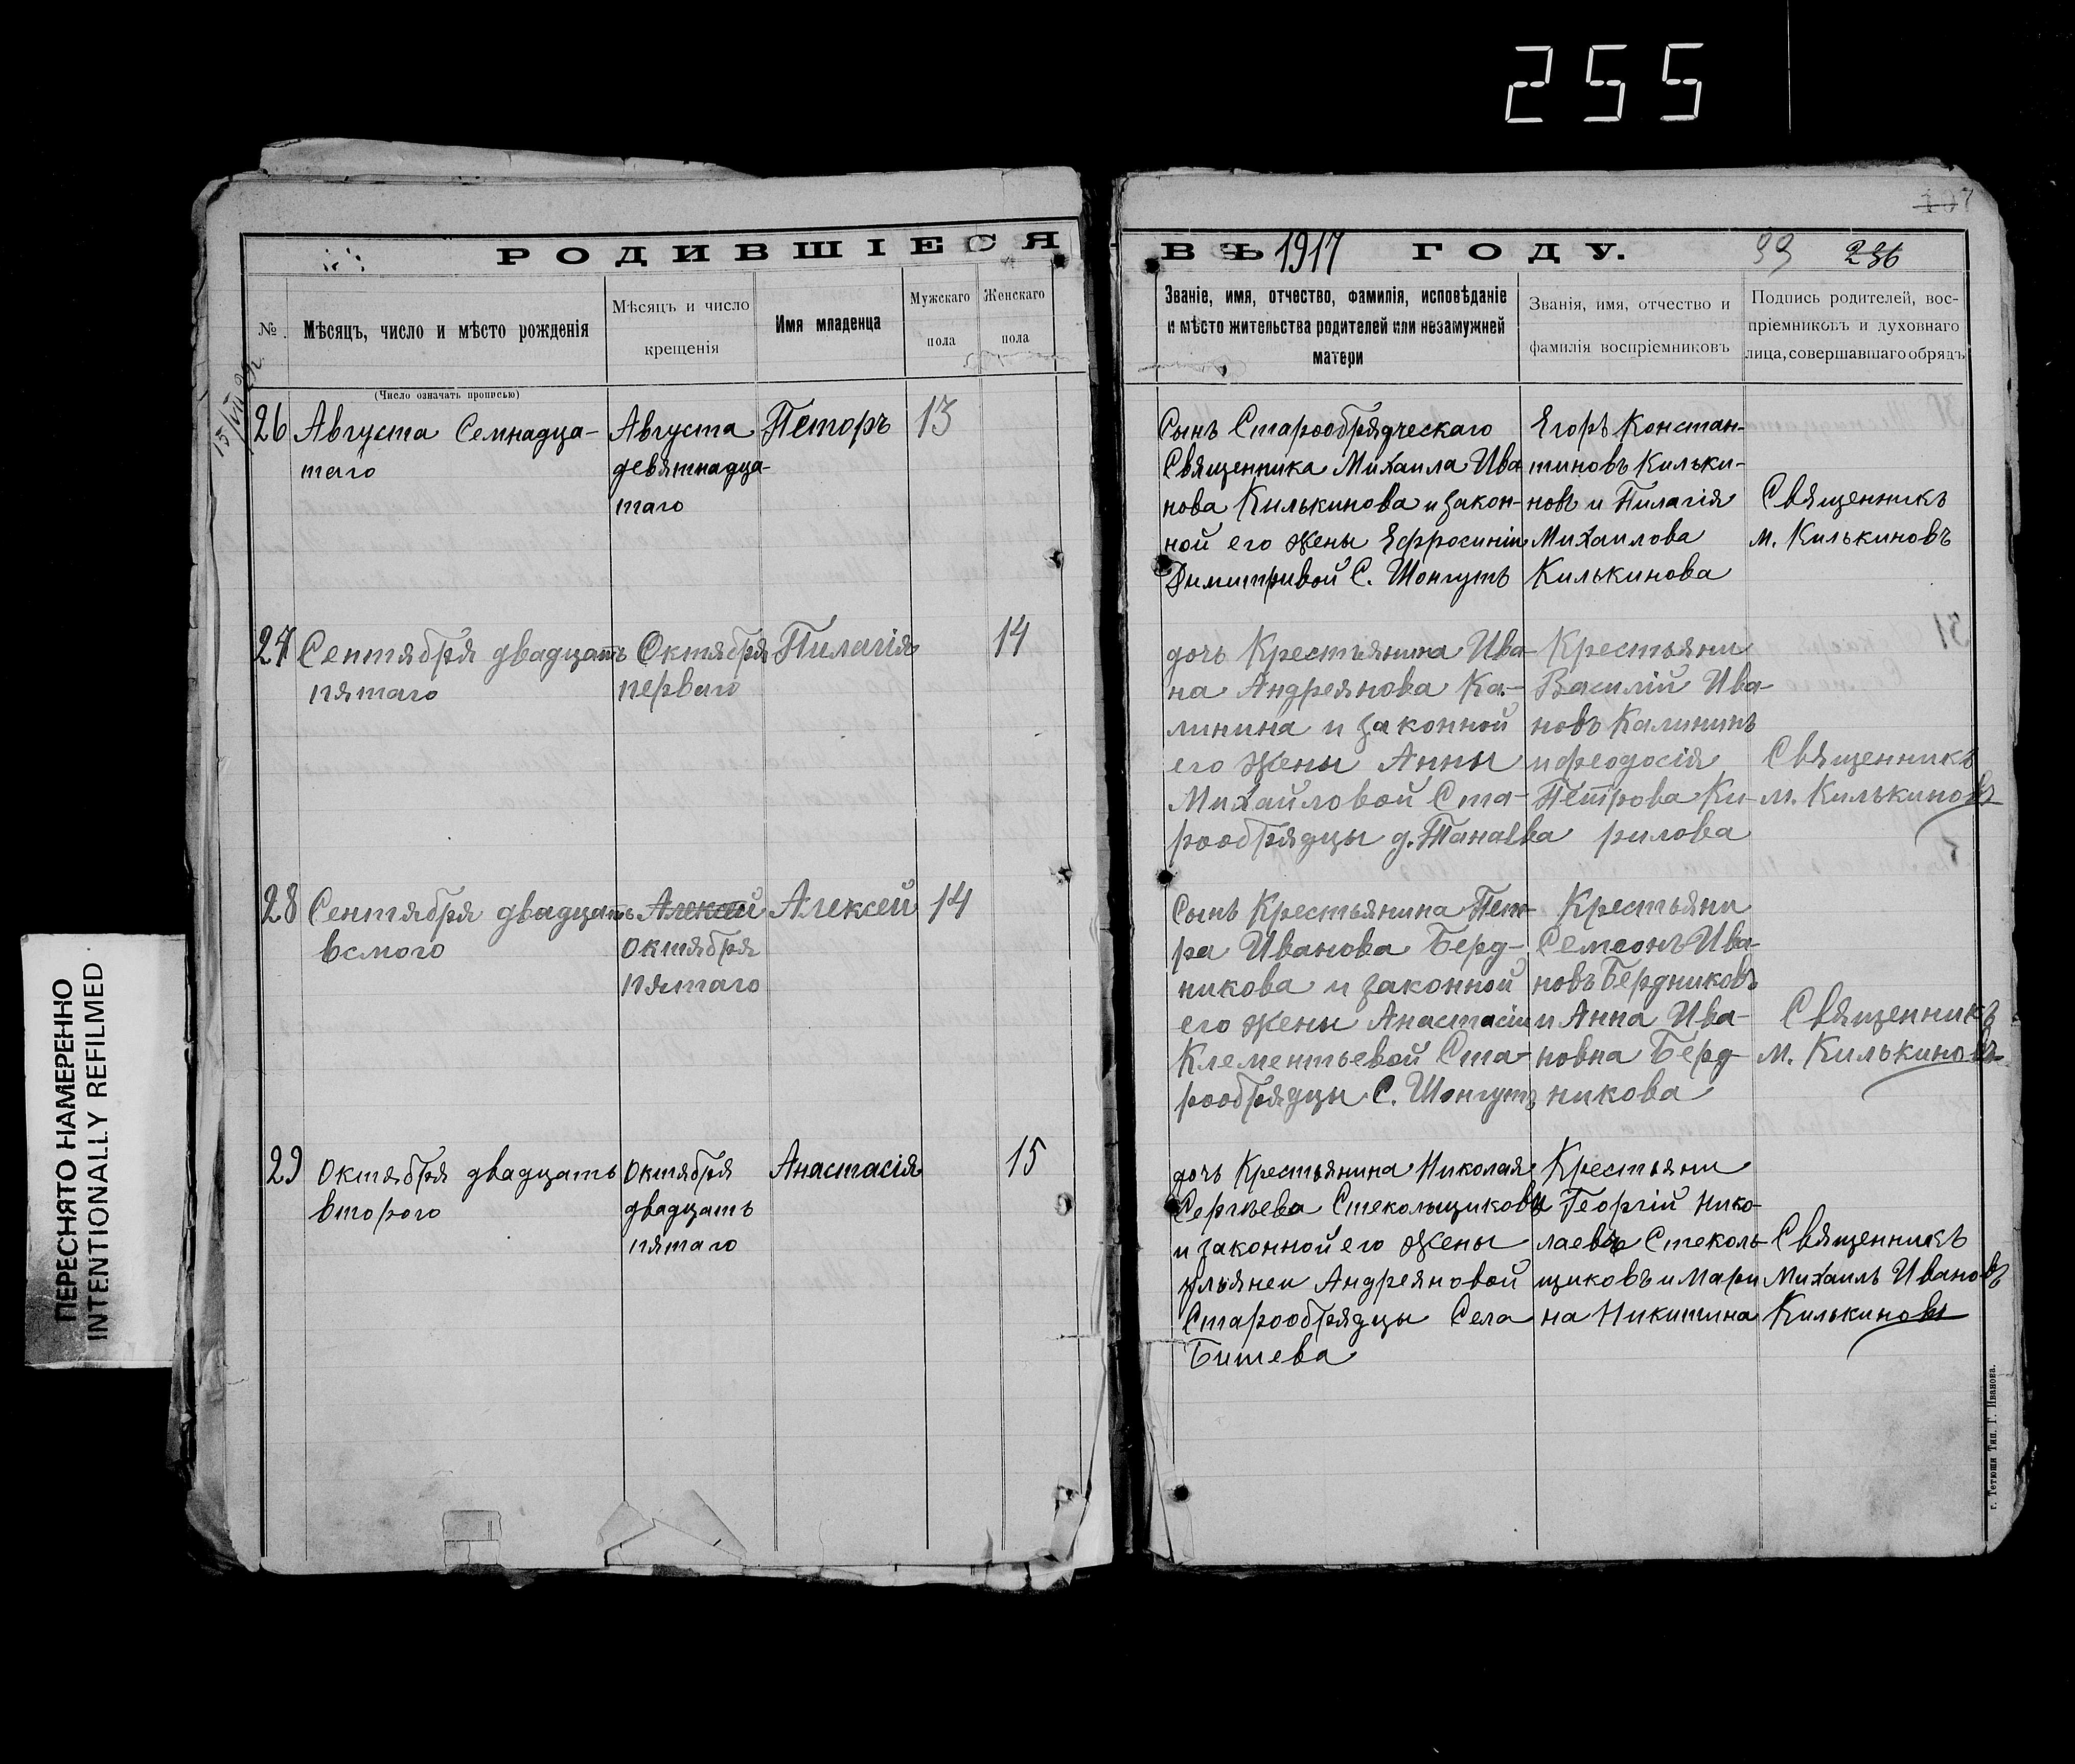 255
107
РОДИВШІЕСЯ
ВЪ 1917 ГОДУ.
99 236
№
Мѣсяцъ, число и мѣсто рожденія
Мѣсяцъ и число
крещенія
Имя младенца
Мужскаго
пола
Женскаго
пола
Званіе, имя, отчество, фамилія, исповѣданіе
и мѣсто жительства родителей или незамужней
матери
Званія, имя, отчество и
фамилія воспріемниковъ
Подпись родителей, вос-
пріемниковъ и духовнаго
лица, совершавшаго обрядъ
(Число означать прописью)
26 Августа Семнадца-
таго
Августа
девятнадца-
таго
Петоръ
13
Сынъ Старообрядческаго
Священника Михаила Ива
нова Килькинова и закон-
ной его жены Ефросиніи
Димитривой С. Шонгутъ
Егоръ Констан-
тиновъ Кильки-
новъ и Пилагія
Михаилова
Килькинова
Священникъ
м. Килькиновъ
27 Сентября двадцать
пятаго
Октября
перваго
Пилагія
14
дочь Крестьянина Ива-
на Андреянова Ка-
линина и законной
его жены Анны
Михайловой Ста-
рообрядцы д. Танаева
Крестьяни
Василій Ива-
новъ Калининъ
и феодосія
Петрова Ки-
рилова
Священникъ
м. Килькиновъ
28 Сентября двадцать
всмого
Алексей
Октября
пятаго
Алексей
14
Сынъ Крестьянина Пет-
ра Иванова Берд-
никова и законной
его жены Анастасіи
Клементьевой Ста-
рообрядцы С. Шонгутъ
Крестьяни
Семеонъ Ива-
новъ Бердниковъ
и Анна Ива-
новна Берд-
никова
Священникъ
м. Килькиновъ
29 Октября двадцать
второго
Октября
двадцать
пятаго
Анастасія
15
дочь Крестьянина Николая
Сергѣева Стекольщикова
и законной его жены
ульянеи Андреяновой
Старообрядцы Села
Битева
Крестьяни
Георгій Нико-
лаевъ Стеколь-
щиковъ и Мари
на Никитина
Священникъ
Михаилъ Ивановъ
Килькиновъ
г. Тетюши Тип. Г. Иванова.
ПЕРЕСНЯТО НАМЕРЕННО
INTENTIONALLY REFILMED